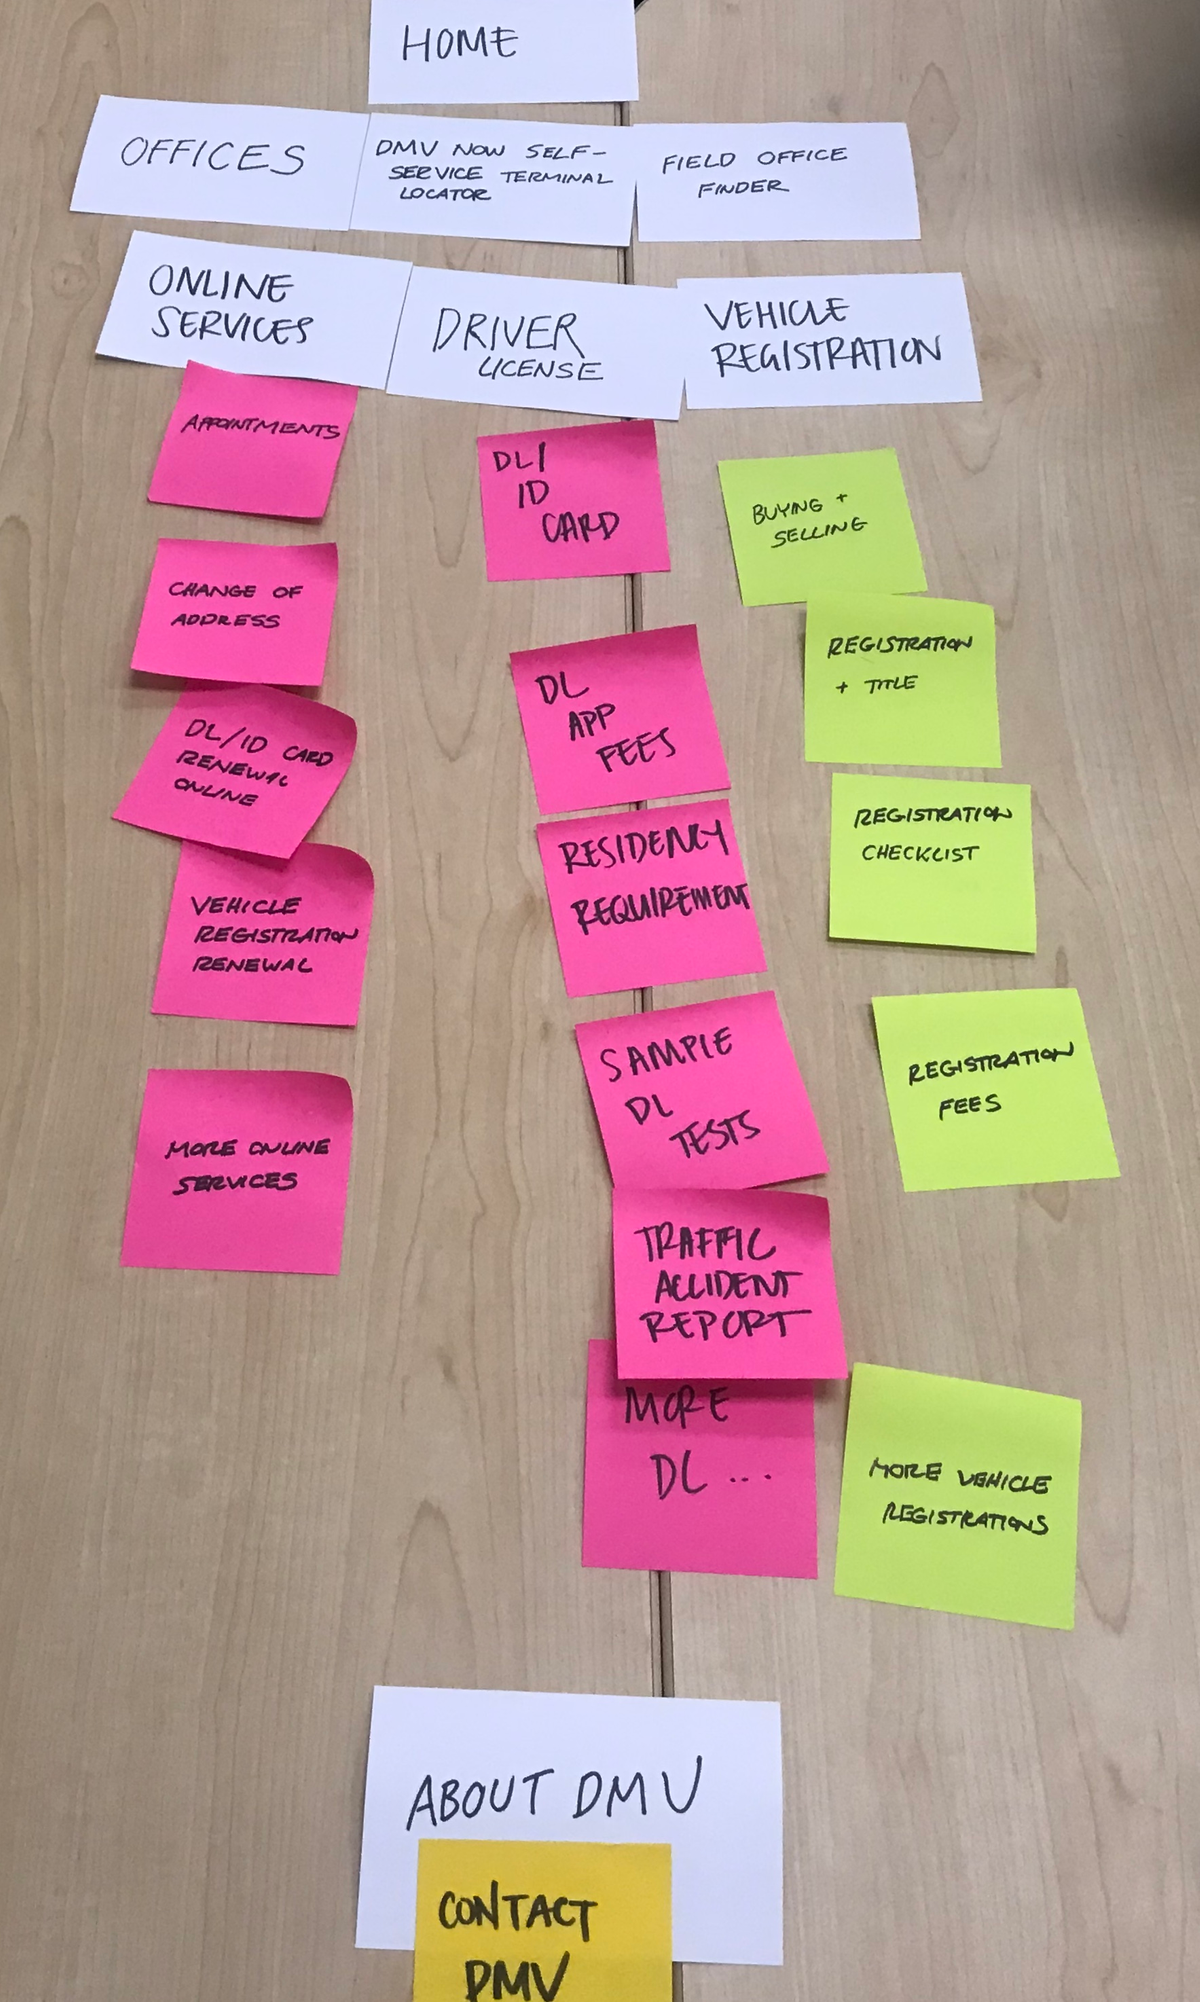 HOME
OFFICES
DMV NOW SELF-
SERVICE TERMINAL
LOCATOR
FIELD OFFICE
FINDER
ONLINE
SERVICES
DRIVER
LICENSE
VEHICLE
REGISTRATION
APPOINTMENTS
CHANGE OF
ADDRESS
DL/ID CARD
RENEWAL
ONLINE
VEHICLE
REGISTRATION
RENEWAL
MORE ONLINE
SERVICES
DL/
ID
CARD
DL
APP
FEES
RESIDENCY
REQUIREMENT
SAMPLE
DL
TESTS
TRAFFIC
ACCIDENT
REPORT
MORE
DL ...
BUYING +
SELLING
REGISTRATION
+ TITLE
REGISTRATION
CHECKLIST
REGISTRATION
FEES
MORE VEHICLE
REGISTRATIONS
ABOUT DMV
CONTACT
DMV